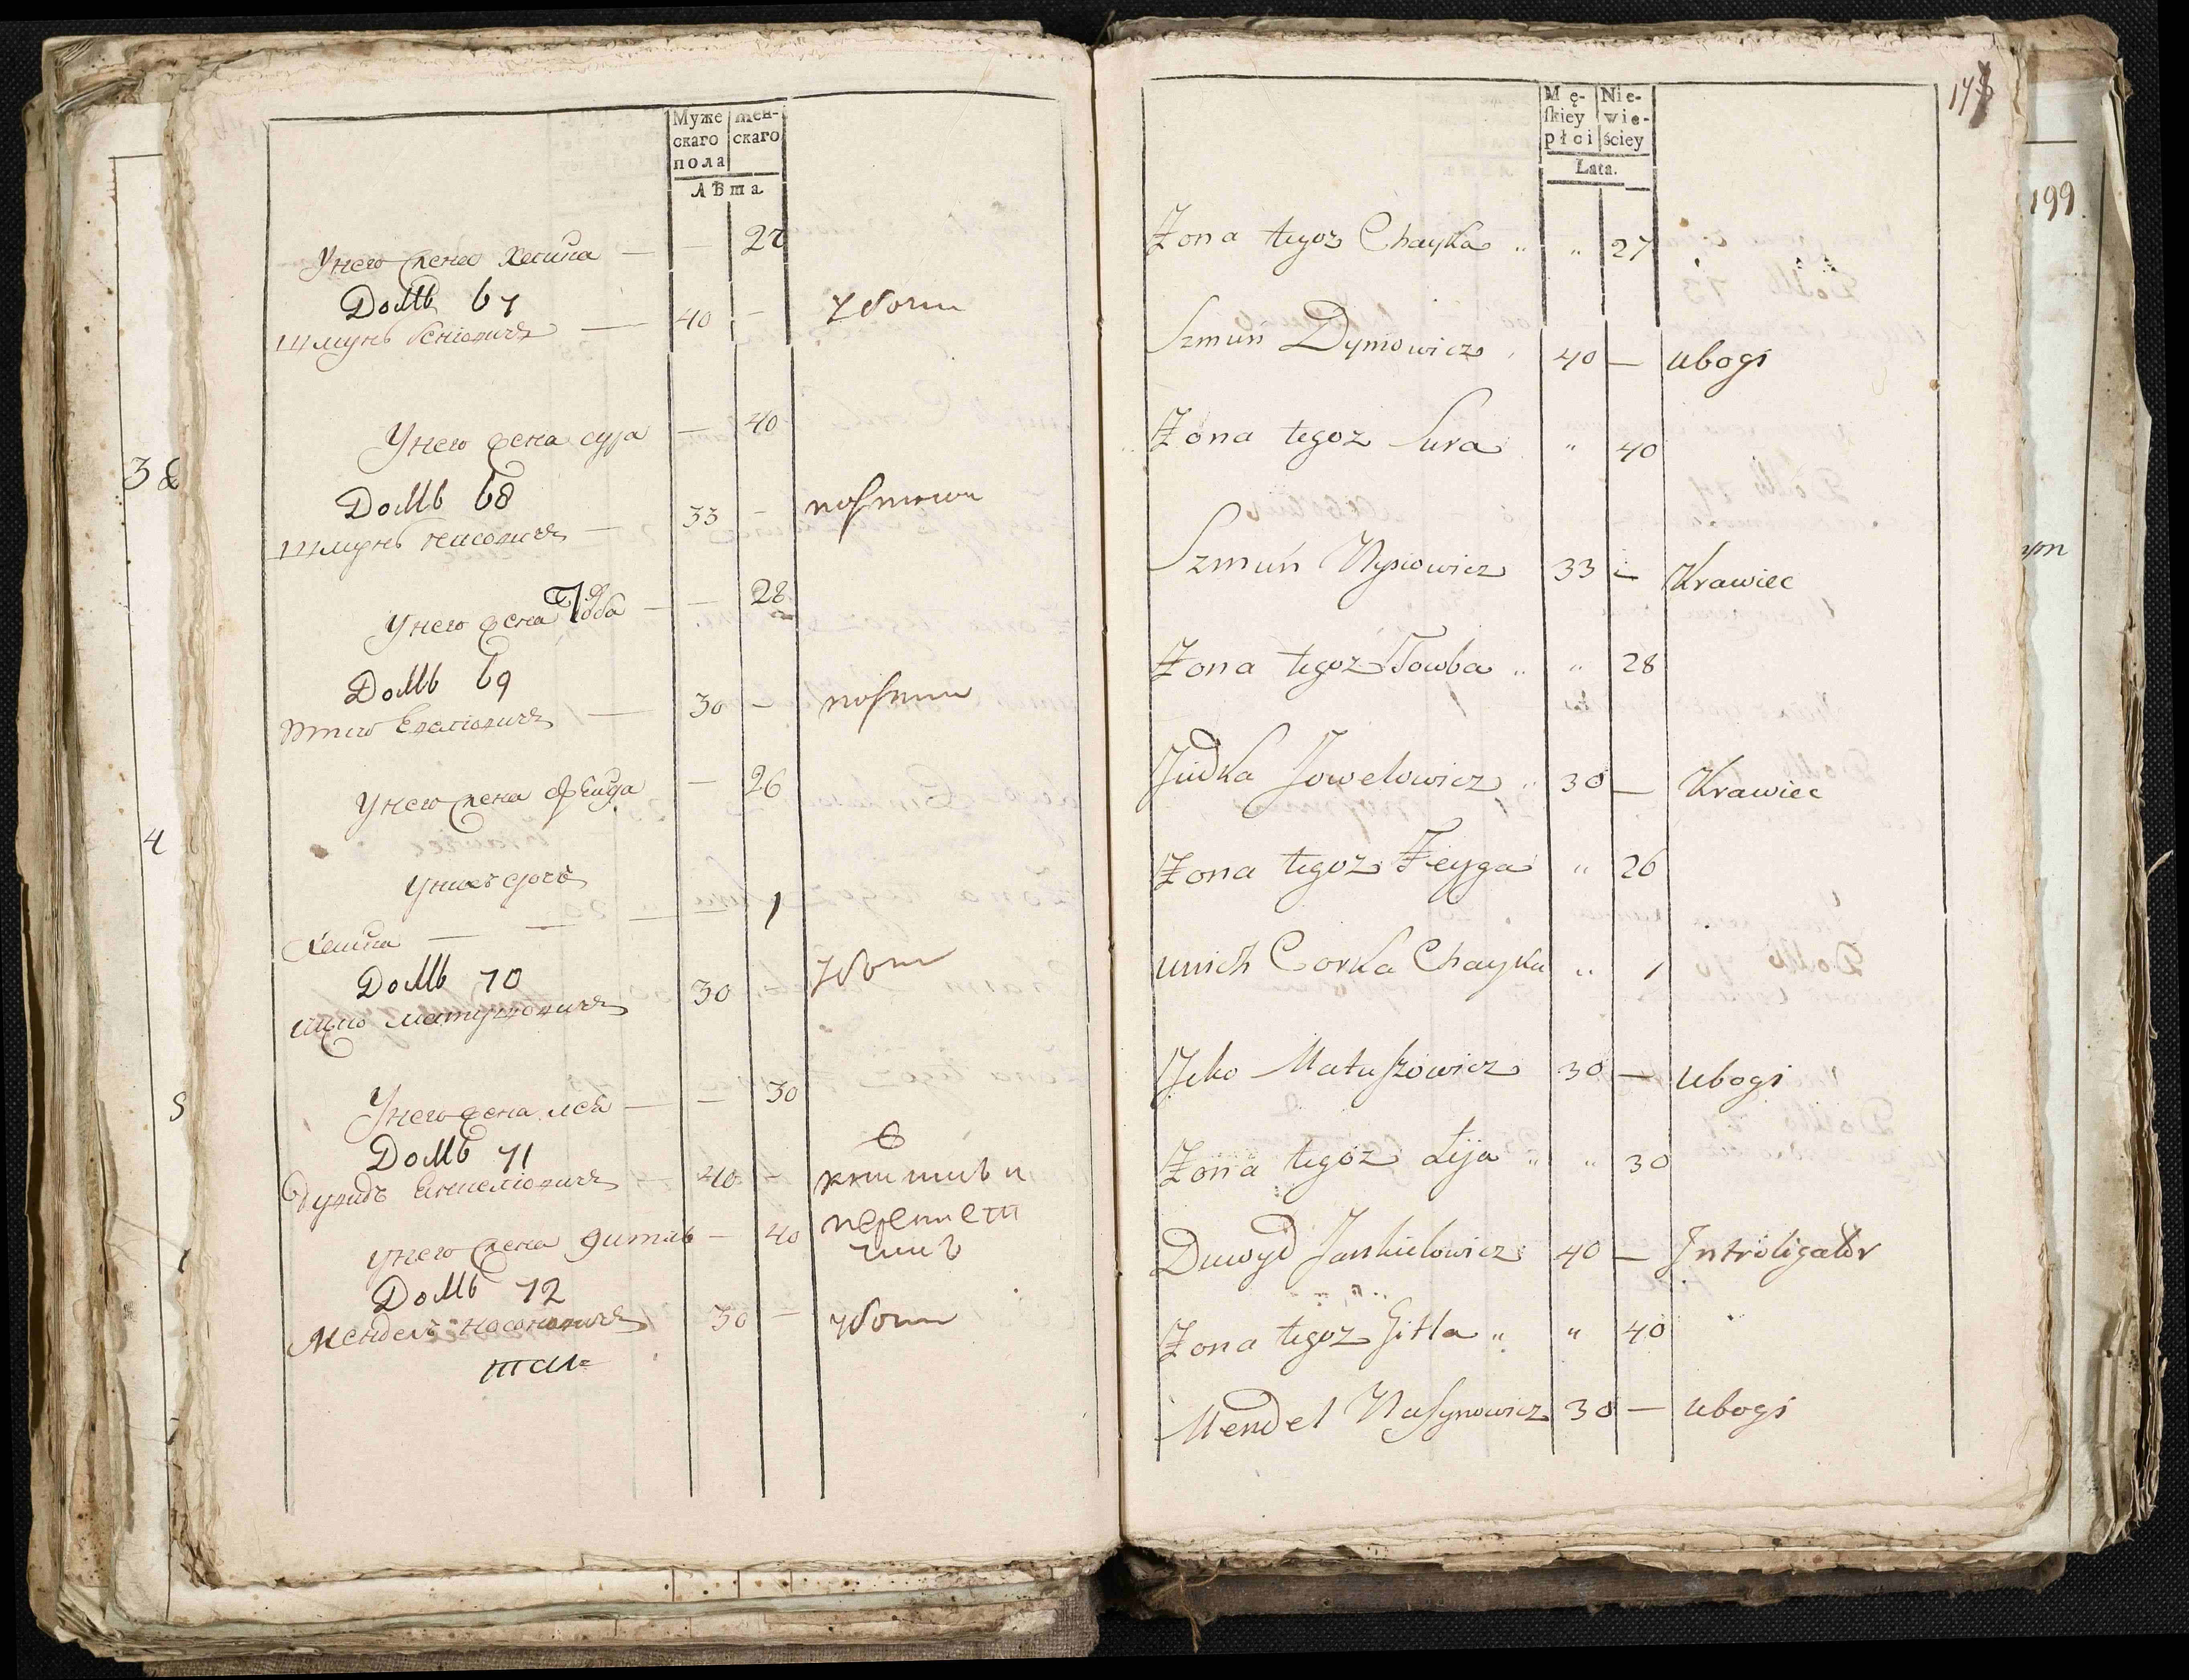 Муже
скаго
пола
жен-
скаго
Лѣта
Унего жена Хаика — — 27
Домъ 67
Шмунь — 40 — убоги
Унего жена сура — 40
Домъ 68
Шмунь — 33 —
Унего жена Тоба — — 28
Домъ 69
— 30 —
Унего жена Фейга — 26
Унихъ дочь
Хаика — — — — 1
Домъ 70
Ицко Матушовичъ 30 убоги
Унего жена лея — — 30
Домъ 71
Дувидъ Янкелювичъ — 40 —
унего жена Гитля — 40
Домъ 72
Мендель Носоновичъ 30 — убоги
173
Mę-
skiey
płci
Nie-
wie-
ściey
Lata.
Zona tegoz Chayka „ „ 27
Szmuń Dymowicz 40 — ubogi
Zona tegoz Sura „ 40
Szmuń Nysiowicz 33 — Krawiec
Zona tegoz Towba „ „ 28
Judka Jowelowicz „ 30 — Krawiec
Zona tegoz Feyga „ 26
unich Corka Chayka „ 1
Icko Matuszowicz 30 — ubogi
Zona tegoz Lija „ „ 30
Duwyd Jankielowicz 40 — Introligator
Zona tegoz Gitla „ „ 40
Mendel Nusynowicz 30 — ubogi
199